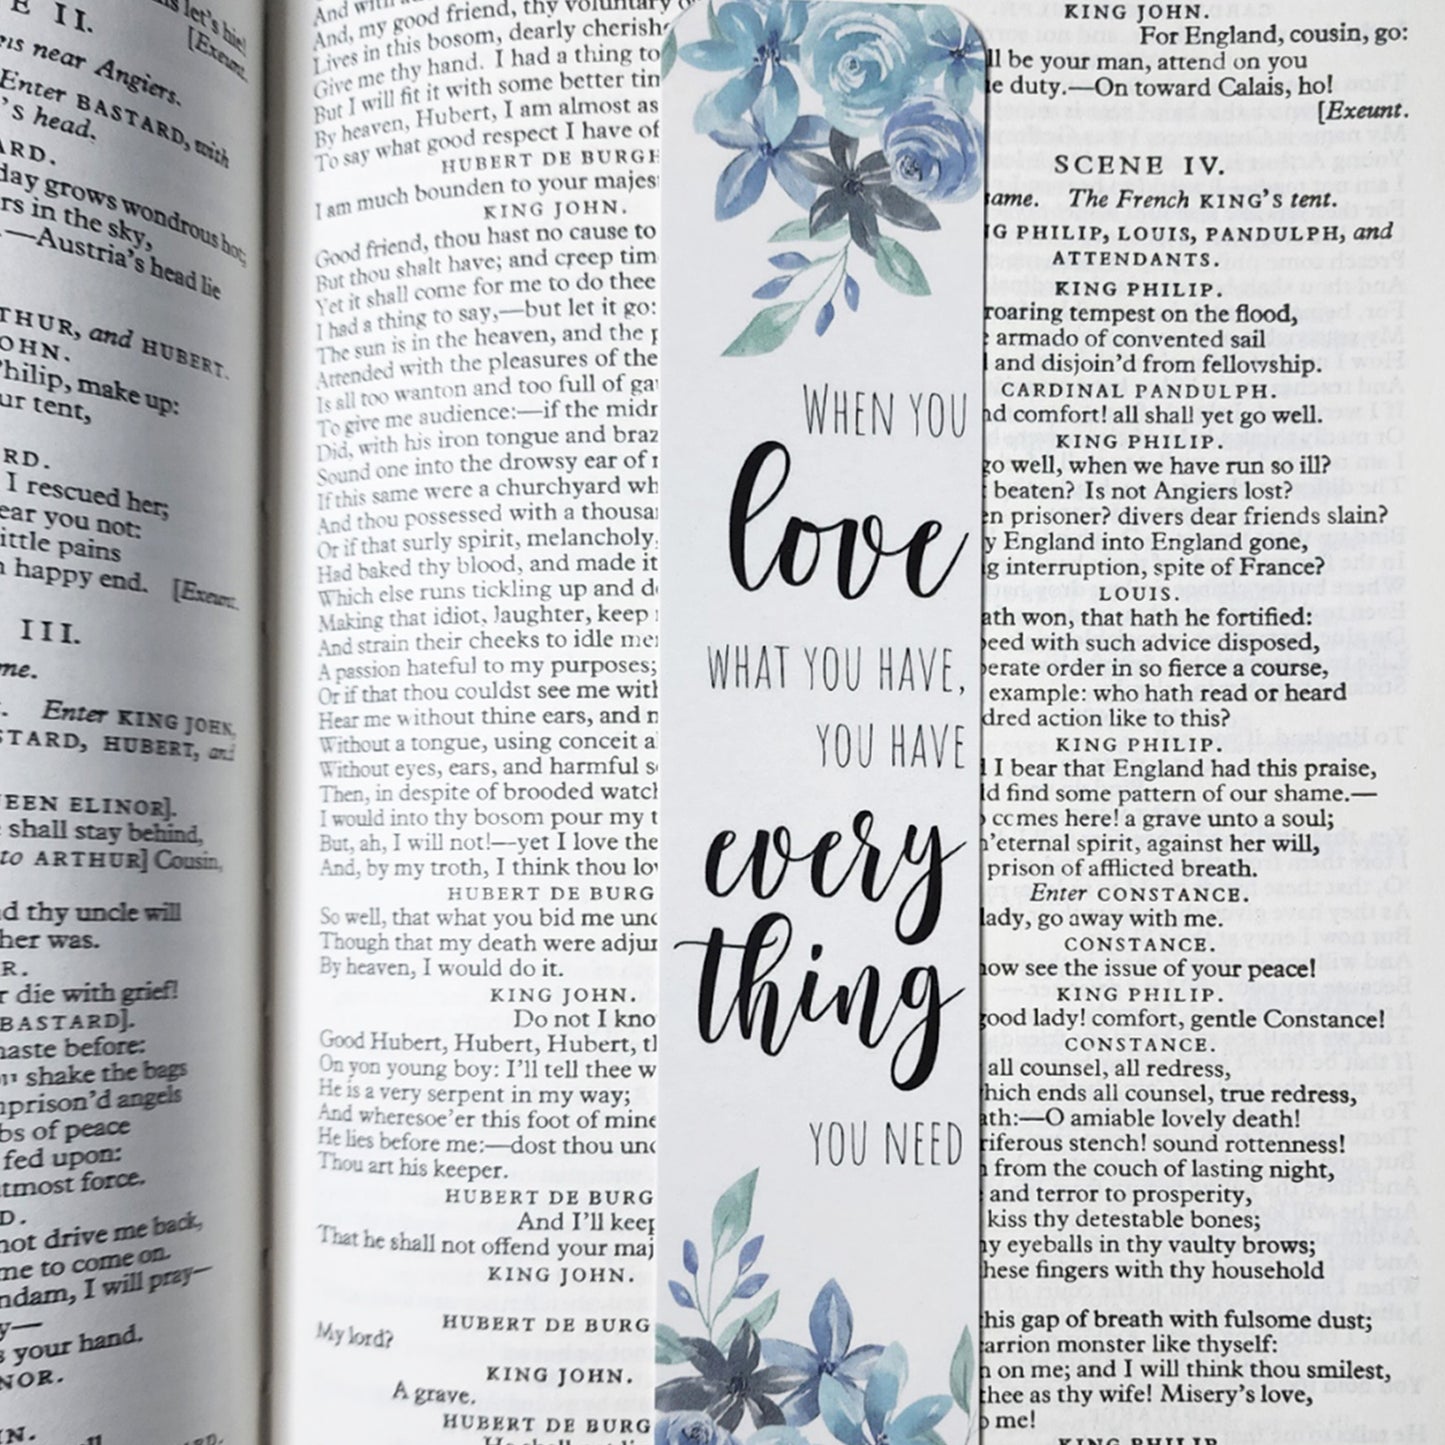 E II.
near Angiers.
Enter BASTARD, with
's head.
day grows wondrous hot;
in the sky,
—Austria's head lie
and HUBERT.
make up:
tent,
I rescued her;
you not:
little pains
happy end. [Exeunt.
III.
Enter KING JOHN,
HUBERT, and
ELINOR].
shall stay behind,
to ARTHUR] Cousin,
thy uncle will
was.
die with grief!
BASTARD].
haste before:
shake the bags
angels
of peace
fed upon:
utmost force.
not drive me back,
me to come on.
I will pray—
your hand.
And, my good friend, thy voluntary
Lives in this bosom, dearly
Give me thy hand. I had a thing to
But I will fit it with some better
By heaven, Hubert, I am almost
To say what good respect I have of
HUBERT DE
I am much bounden to your
KING JOHN.
Good friend, thou hast no cause to
But thou shalt have; and creep
Yet it shall come for me to do thee
I had a thing to say,—but let it go:
The sun is in the heaven, and the
Attended with the pleasures of the
Is all too wanton and too full of
To give me audience:—if the
Did, with his iron tongue and
Sound one into the drowsy ear of
If this same were a churchyard
And thou possessed with a
Or if that surly spirit, melancholy
Had baked thy blood, and made it
Which else runs tickling up and
Making that idiot, laughter, keep
And strain their cheeks to idle
A passion hateful to my purposes;
Or if that thou couldst see me
Hear me without thine ears, and
Without a tongue, using conceit
Without eyes, ears, and harmful
Then, in despite of brooded
I would into thy bosom pour my
But, ah, I will not!—yet I love
And, by my troth, I think thou
HUBERT DE BURG
So well, that what you bid me
Though that my death were
By heaven, I would do it.
KING JOHN.
Do not I
Good Hubert, Hubert, Hubert,
On yon young boy: I'll tell thee
He is a very serpent in my way;
And wheresoe'er this foot of mine
He lies before me:—dost thou
Thou art his keeper.
HUBERT DE BURG
And I'll
That he shall not offend your
KING JOHN.
HUBERT DE BURG
My lord?
KING JOHN.
A grave.
HUBERT DE BURG
WHEN YOU
love
WHAT YOU HAVE,
YOU HAVE
every
thing
YOU NEED
KING JOHN.
For England, cousin, go:
be your man, attend on you
duty.—On toward Calais, ho!
[Exeunt.
SCENE IV.
The French KING'S tent.
PHILIP, LOUIS, PANDULPH, and
ATTENDANTS.
KING PHILIP.
roaring tempest on the flood,
armado of convented sail
and disjoin'd from fellowship.
CARDINAL PANDULPH.
comfort! all shall yet go well.
KING PHILIP.
go well, when we have run so ill?
beaten? Is not Angiers lost?
prisoner? divers dear friends slain?
England into England gone,
interruption, spite of France?
LOUIS.
won, that hath he fortified:
with such advice disposed,
order in so fierce a course,
example: who hath read or heard
action like to this?
KING PHILIP.
I bear that England had this praise,
find some pattern of our shame.—
comes here! a grave unto a soul;
eternal spirit, against her will,
prison of afflicted breath.
Enter CONSTANCE.
lady, go away with me.
CONSTANCE.
now see the issue of your peace!
KING PHILIP.
good lady! comfort, gentle Constance!
CONSTANCE.
all counsel, all redress,
which ends all counsel, true redress,
O amiable lovely death!
stench! sound rottenness!
from the couch of lasting night,
and terror to prosperity,
kiss thy detestable bones;
my eyeballs in thy vaulty brows;
these fingers with thy household
this gap of breath with fulsome dust;
carrion monster like thyself:
on me; and I will think thou smilest,
thee as thy wife! Misery's love,
me!
KING PHILIP